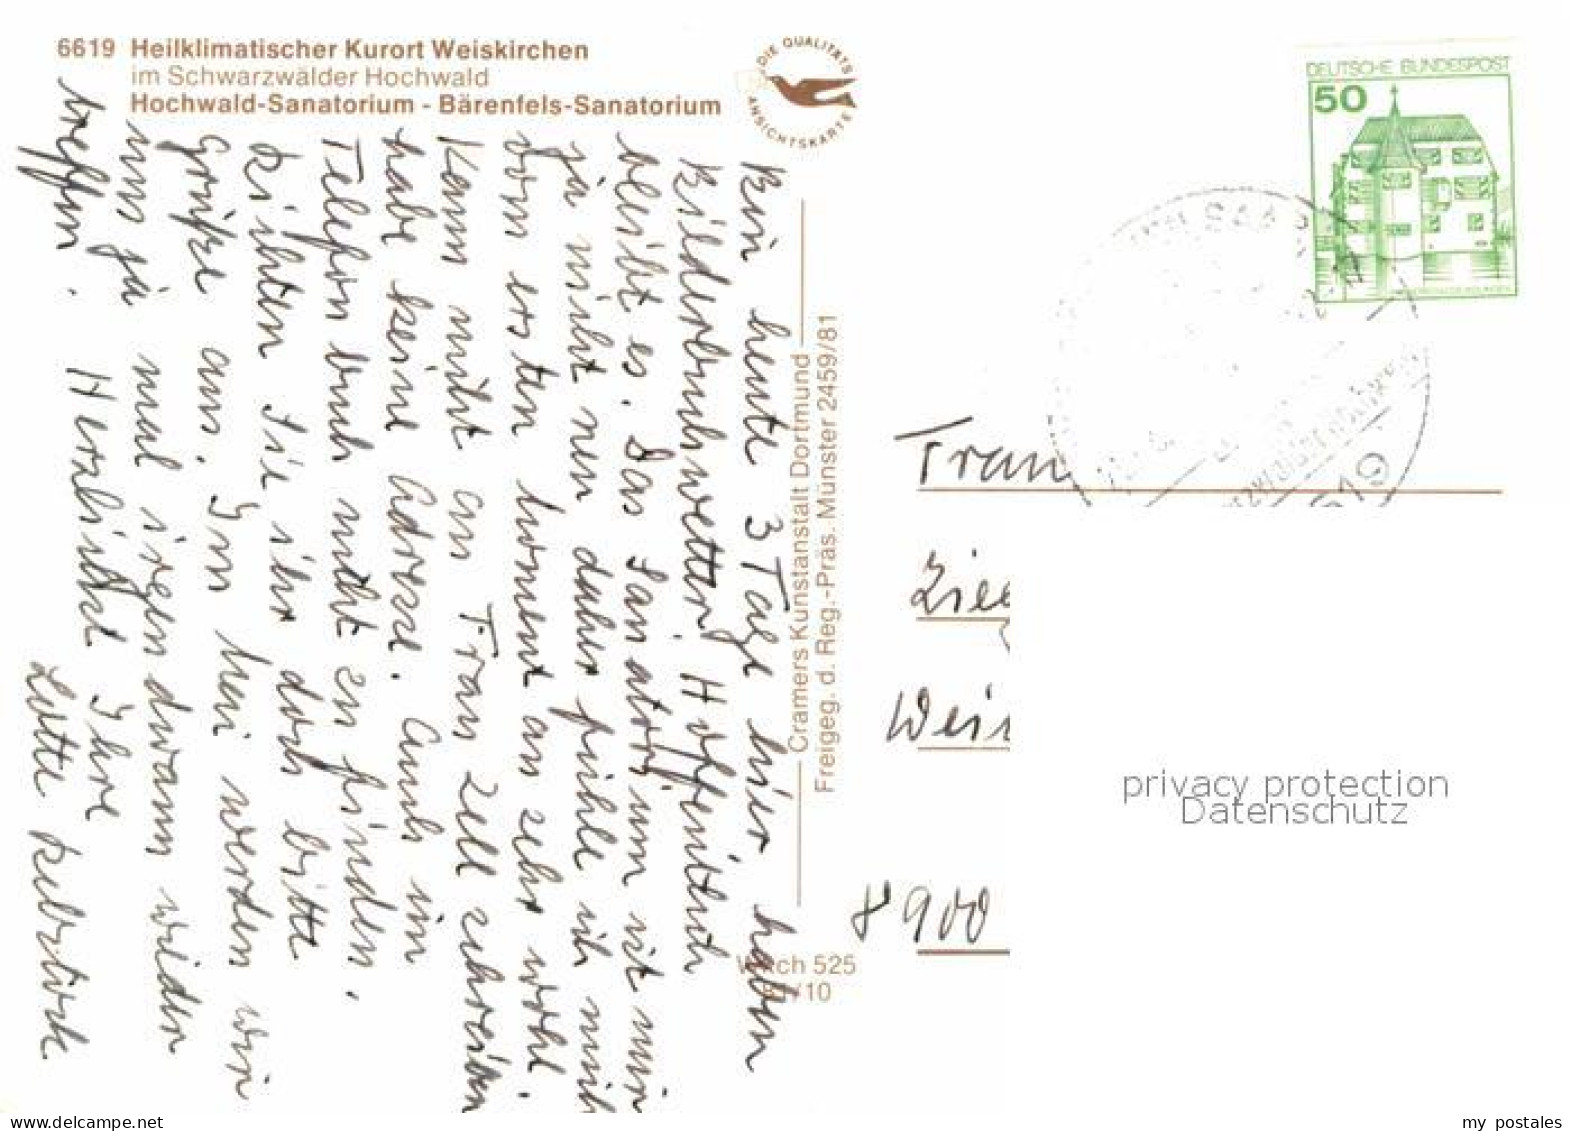 6619 Heilklimatischer Kurort Weiskirchen
im Schwarzwälder Hochwald
Hochwald-Sanatorium - Bärenfels-Sanatorium
DIE QUALITÄTS
ANSICHTSKARTE
DEUTSCHE BUNDESPOST
50
Bin heute 3 Tage hier haben
Bilderbuchwetter. Hoffentlich
bleibt es. Das Sanatorium ist mir
ja nicht neu daher fühle ich mich
vom ersten Moment an sehr wohl.
Kann nicht an Frau Zell schreiben
habe keine Adresse. Auch im
Telefonbuch nicht zu finden.
Richten Sie ihr doch bitte
Grüße aus. Im Mai werden wir
uns ja mal irgendwann wieder
treffen. Herzlichst Ihre
Lotte
Cramers Kunstanstalt Dortmund
Freigeg. d. Reg.-Präs. Münster 2459/81
Wkch 525
81/10
Frau
Wei
8900
6619
privacy protection
Datenschutz
www.delcampe.net
my_postales